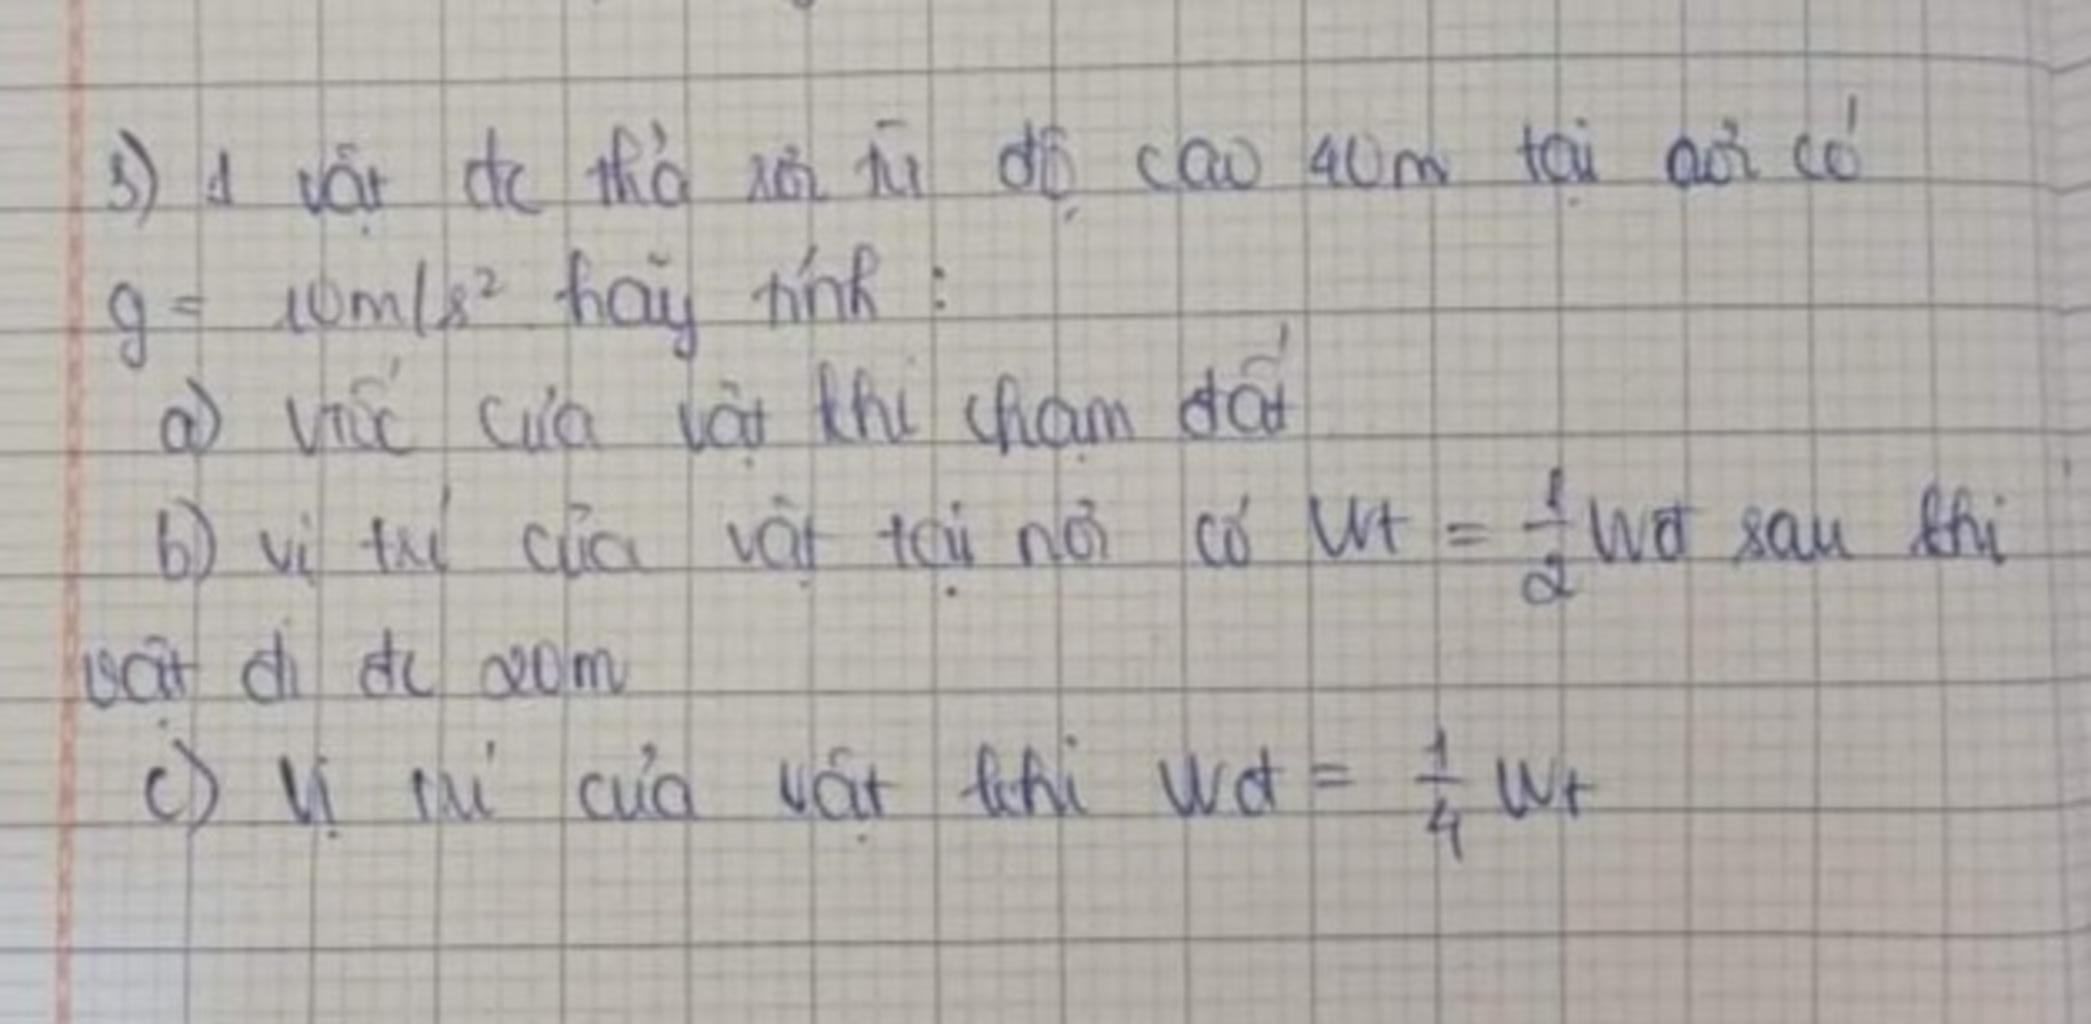 3) 1 vật đc thả rơi từ độ cao 40m tại nơi có
g = 10m/s² hãy tính :
a) vtốc của vật khi chạm đất
b) vị trí của vật tại nơi có Wt = 1/2 Wđ sau khi
vật đi đc 20m
c) Vị trí của vật khi Wđ = 1/4 Wt